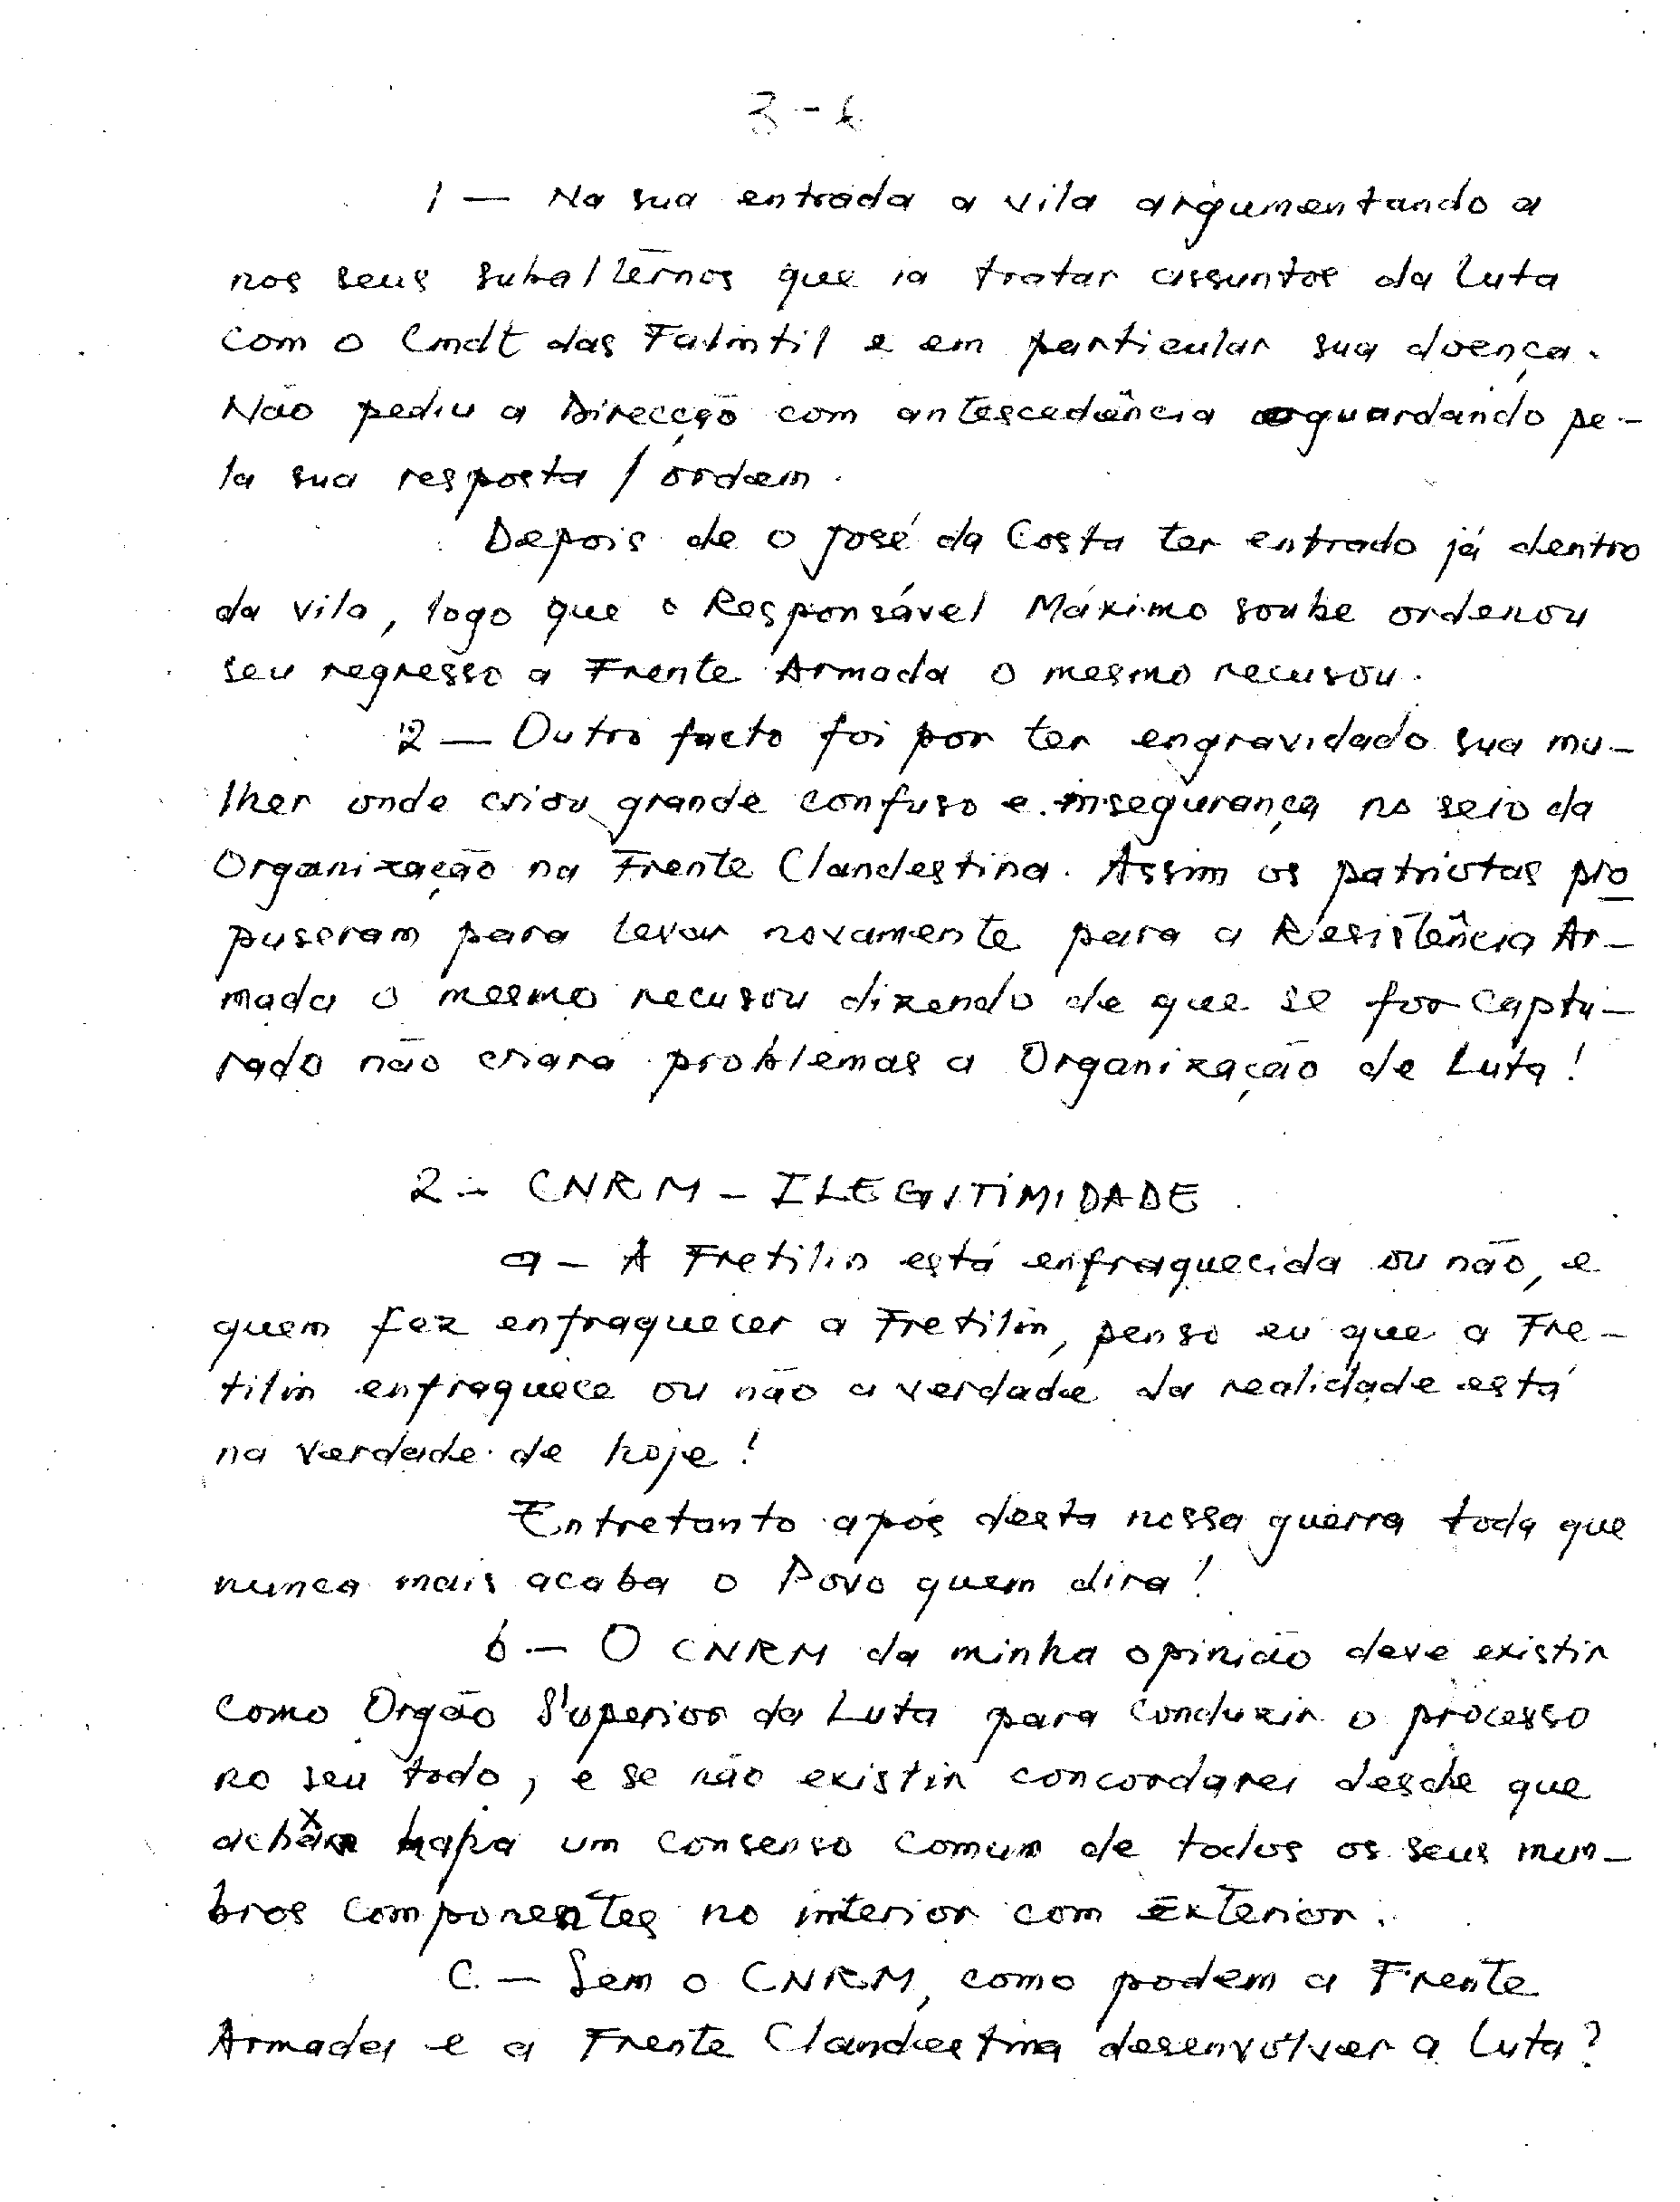 1 — Na sua entrada a vila argumentando a
nos seus subalternos que ia tratar assuntos da luta
com o Cmdt das Falintil e em particular sua doença.
Não pediu a Direcção com antescedência aguardando pe-
la sua resposta / ordem.
Depois de o José da Costa ter entrado já dentro
da vila, logo que o Responsável Máximo soube ordenou
seu regresso a Frente Armada o mesmo recusou.
2 — Outro facto foi por ter engravidado sua mu-
lher onde criou grande confuso e insegurança no seio da
Organização na Frente Clandestina. Assim os patriotas pro
puseram para levar novamente para a Resistência Ar-
mada o mesmo recusou dizendo de que se for captu-
rado não criará problemas a Organização de Luta!
2 - CNRM - ILEGITIMIDADE
a - A Fretilin está enfraquecida ou não, e
quem fez enfraquecer a Fretilin, penso eu que a Fre-
tilin enfraquece ou não a verdade da realidade está
na verdade de hoje!
Entretanto após desta nossa guerra toda que
nunca mais acaba o Povo quem dira!
b - O CNRM da minha opinião deve existir
como Orgão Superior da Luta para conduzir o processo
no seu todo, e se não existir concordarei desde que
haja um consenso comum de todos os seus mem-
bros componentes no interior com Exterior.
C. — Sem o CNRM, como podem a Frente
Armada e a Frente Clandestina desenvolver a luta?